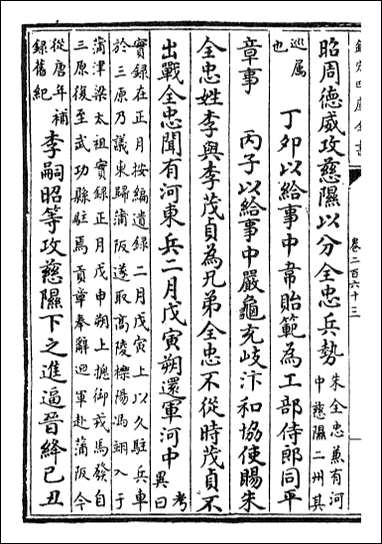 欽定四庫全書
卷二百六十三
昭周德威攻慈隰以分全忠兵勢朱全忠兼有河
中慈隰二州其
巡屬
也 丁卯以給事中韋貽範為工部侍郎同平
章事 丙子以給事中嚴龜充岐汴和協使賜朱
全忠姓李與李茂貞為兄弟全忠不從時茂貞不
出戰全忠聞有河東兵二月戊寅朔還軍河中考
異曰
實錄在正月按編遺錄二月戊寅上以久駐兵車
於三原乃議東歸蒲阪遂取高陵櫟陽馮翊入于
蒲津梁太祖實錄正月戊申朔上擐御戎馬發自
三原後至武功縣駐焉貢章奉辭迴軍赴蒲阪今
從唐年補
錄舊紀 李嗣昭等攻慈隰下之進逼晉絳己丑